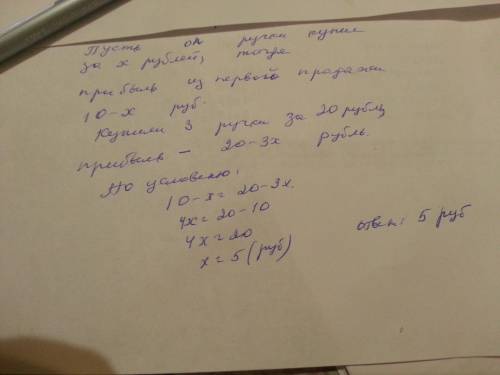 Пусть он ручки купил
за x рублей, тогда
прибыль из первого продажи
10-x руб.
Купили 3 ручки за 20 рубль,
прибыль - 20-3x рубль.
По условию:
10-x=20-3x.
4x=20-10
4x=20
x=5(руб)
ответ: 5 руб